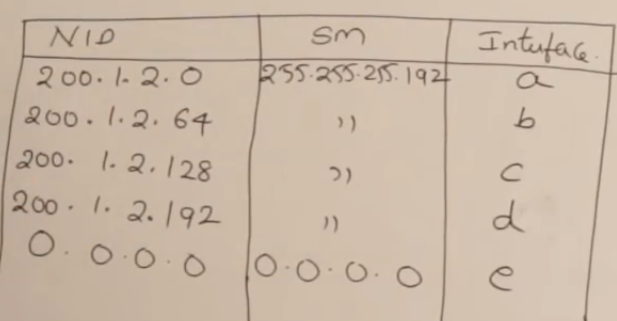 NID SM Interface.
200.1.2.0 255.255.255.192 a
200.1.2.64 " b
200.1.2.128 " c
200.1.2.192 " d
0.0.0.0 0.0.0.0 e